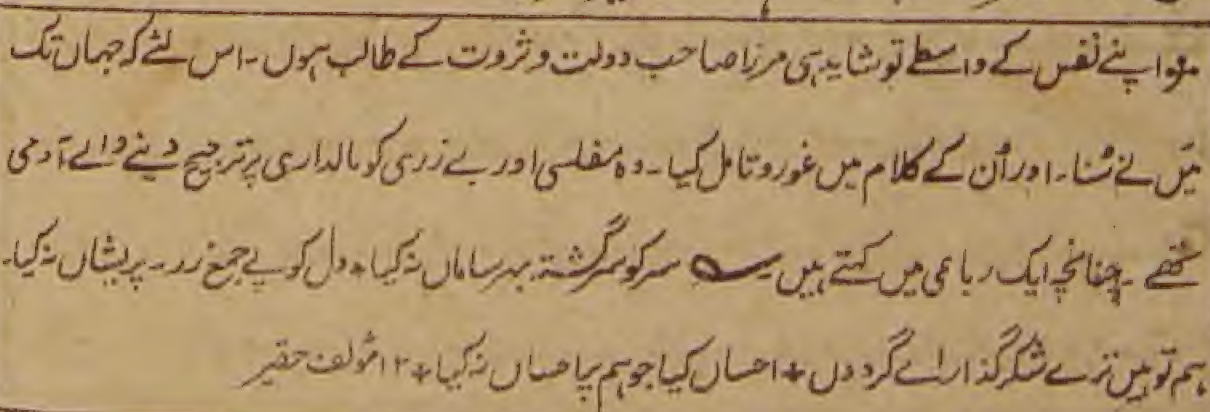 مؤا اپنے نفس کے واسطے تو شاید ہی مرزا صاحب دولت و ثروت کے طالب ہوں۔ اس لئے کہ جہاں تک
میں نے سُنا۔ اور اُن کے کلام میں غور و تامل کیا۔ وہ مفلسی اور بے زری کو مالداری پر ترجیح دینے والے آدمی
تھے۔ چنانچہ ایک رباعی میں کہتے ہیں ؎ سر کو سرگشتہ بہر ساماں نہ کیا * دل کو پے جمع زر۔ پریشاں نہ کیا۔
ہم تو ہیں ترے شکر گذار اے گردوں * احساں کیا جو ہم پہ احساں نہ کیا * ۱۲ مؤلف حقیر